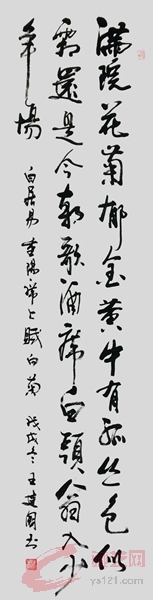 滿院花菊郁金黄中有孤丛色似
霜還是今朝歌酒席白頭翁入少
年場
白居易重陽席上賦白菊 戊戌冬王建国书
ys121.com